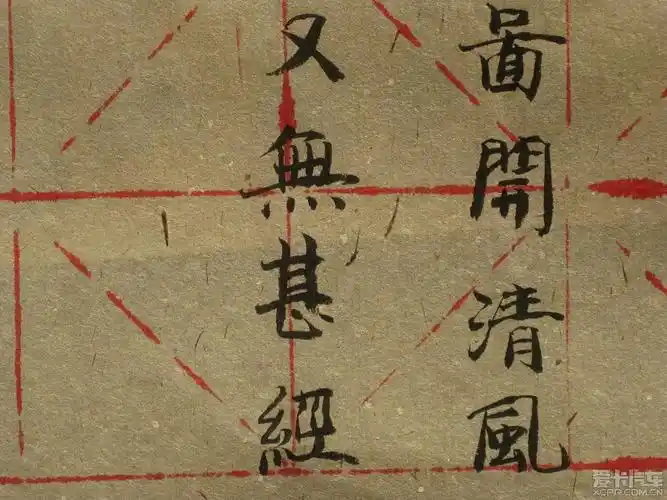 啚開清風
又無甚經
爱卡汽车
XCAR.COM.CN